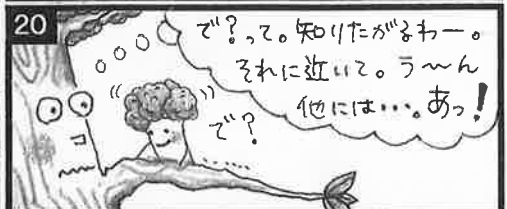 20
で?って。知りたがるわー。
それに近いて。う〜〜ん
他には・・・。あっ!
で?